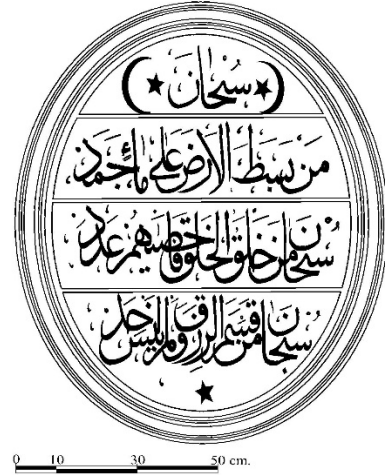 سبحان
من بسط الأرض على ماء جمد
سبحان من خلق الخلق فأحصاهم عدد
سبحان من قسم الرزق ولم ينس أحد
0 10 30 50 cm.